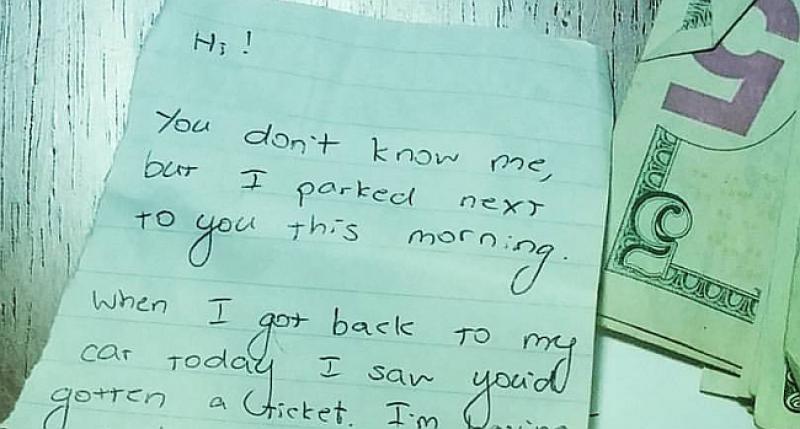 Hi!
You don't know me,
but I parked next
to you this morning.
When I got back to my
car today I saw you'd
gotten a ticket. I'm having
5
5